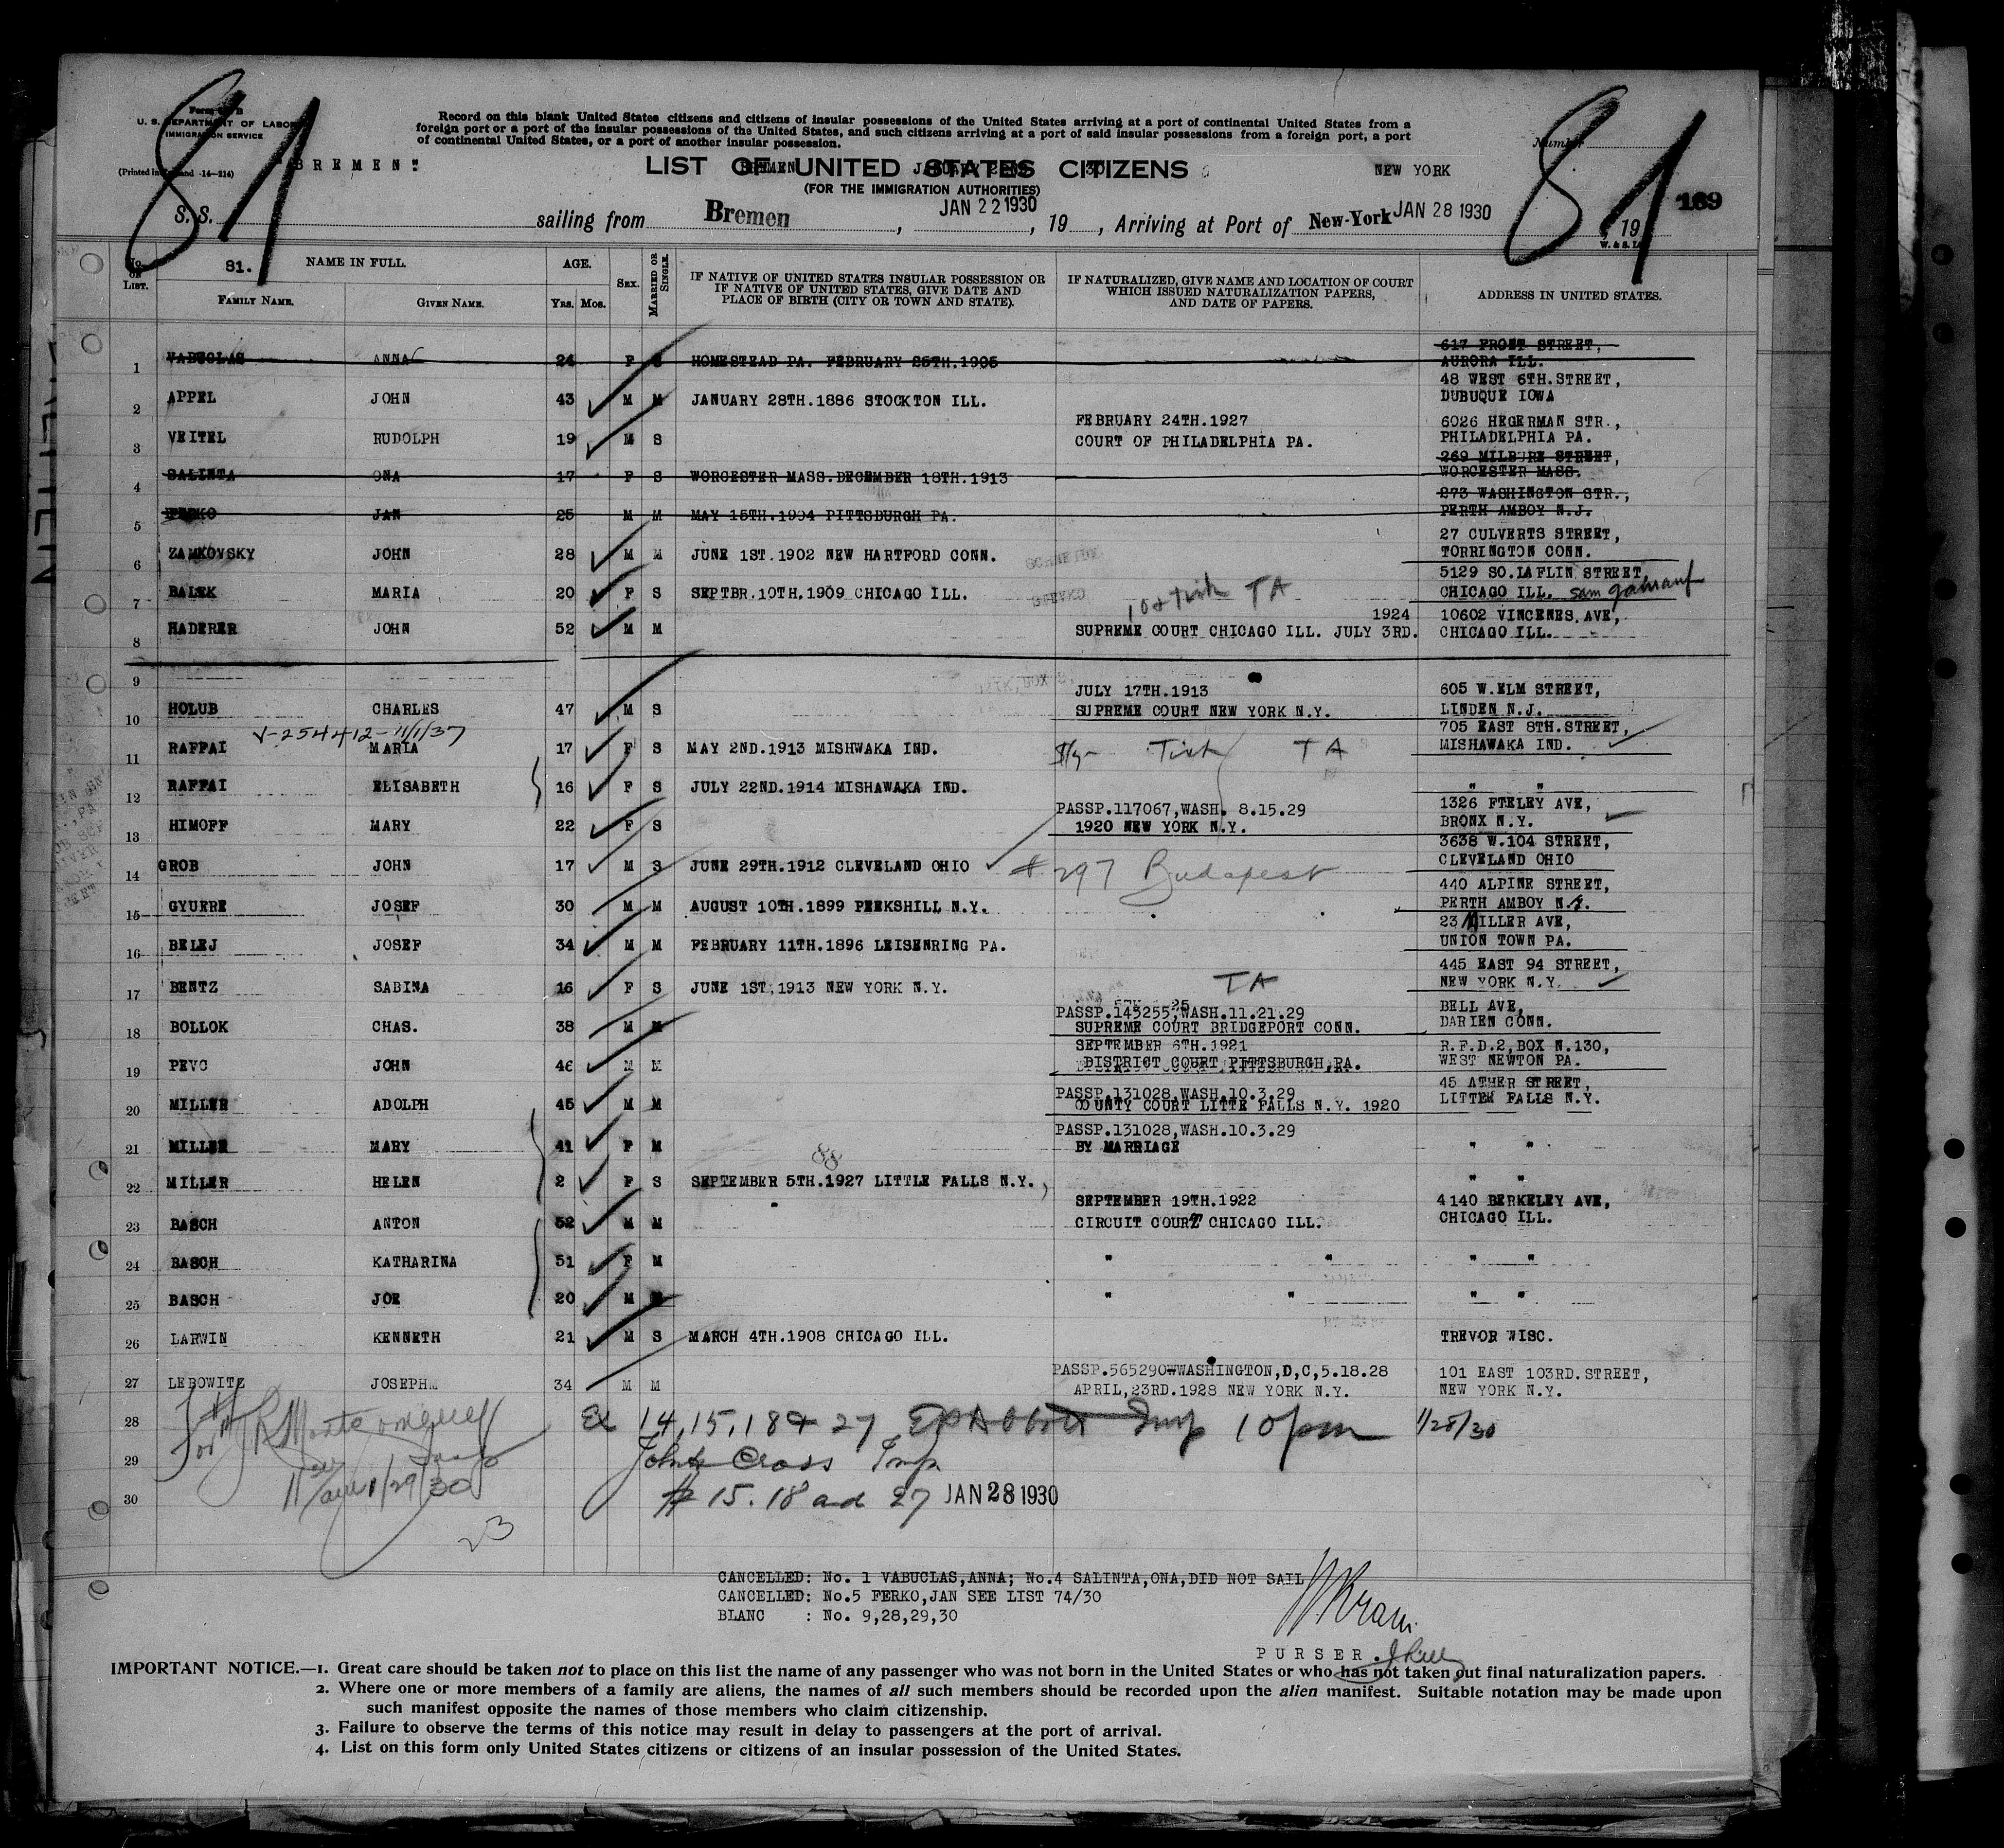 81
81
Form 
U. S. DEPARTMENT OF LABOR
IMMIGRATION SERVICE
(Printed in  and -14-214)
Record on this blank United States citizens and citizens of insular possessions of the United States arriving at a port of continental United States from a
foreign port or a port of the insular possessions of the United States, and such citizens arriving at a port of said insular possessions from a foreign port, a port
of continental United States, or a port of another insular possession.
Number
"BREMEN"
LIST OF UNITED STATES CITIZENS
BREMEN JANUARY 30 NEW YORK
(FOR THE IMMIGRATION AUTHORITIES)
169
S. S. sailing from Bremen, JAN 22 1930, 19 , Arriving at Port of New-York JAN 28 1930, 19
No. OF LIST. 81. NAME IN FULL. AGE. SEX. MARRIED OR SINGLE. IF NATIVE OF UNITED STATES INSULAR POSSESSION OR IF NATIVE OF UNITED STATES, GIVE DATE AND PLACE OF BIRTH (CITY OR TOWN AND STATE). IF NATURALIZED, GIVE NAME AND LOCATION OF COURT WHICH ISSUED NATURALIZATION PAPERS, AND DATE OF PAPERS. ADDRESS IN UNITED STATES.
FAMILY NAME. GIVEN NAME. YRS. MOS.
1 VABUCLAS ANNA 24 F S HOMESTEAD PA. FEBRUARY 25TH.1905 617 FRONT STREET, AURORA ILL.
2 APPEL JOHN 43 M M JANUARY 28TH.1886 STOCKTON ILL. 48 WEST 6TH.STREET, DUBUQUE IOWA
3 VEITEL RUDOLPH 19 M S FEBRUARY 24TH.1927 COURT OF PHILADELPHIA PA. 6026 HEGERMAN STR., PHILADELPHIA PA.
4 SALINTA ONA 17 F S WORCESTER MASS.DECEMBER 18TH.1913 269 MILBURE STREET, WORCESTER MASS.
5 FERKO JAN 25 M M MAY 15TH.1904 PITTSBURGH PA. 273 WASHINGTON STR., PERTH AMBOY N.J.
6 ZAMKOVSKY JOHN 28 M M JUNE 1ST.1902 NEW HARTFORD CONN. 27 CULVERTS STREET, TORRINGTON CONN.
7 BALEK MARIA 20 F S SEPTBR.10TH.1909 CHICAGO ILL. TA 5129 SO.LAFLIN STREET, CHICAGO ILL.
8 HADERER JOHN 52 M M 1924 SUPREME COURT CHICAGO ILL. JULY 3RD. 10602 VINCENES.AVE, CHICAGO ILL.
9
10 HOLUB CHARLES 47 M S JULY 17TH.1913 SUPREME COURT NEW YORK N.Y. 605 W.ELM STREET, LINDEN N.J.
V-254412-11/1/37
11 RAFFAI MARIA 17 F S MAY 2ND.1913 MISHWAKA IND. TA 705 EAST 8TH.STREET, MISHAWAKA IND.
12 RAFFAI ELISABETH 16 F S JULY 22ND.1914 MISHAWAKA IND. " "
13 HIMOFF MARY 22 F S PASSP.117067,WASH. 8.15.29 1920 NEW YORK N.Y. 1326 FTELEY AVE, BRONX N.Y.
14 GROB JOHN 17 M S JUNE 29TH.1912 CLEVELAND OHIO #297 Budapest 3638 W.104 STREET, CLEVELAND OHIO
15 GYURRE JOSEF 30 M M AUGUST 10TH.1899 PEEKSHILL N.Y. 440 ALPINE STREET, PERTH AMBOY N.J.
16 BELEJ JOSEF 34 M M FEBRUARY 11TH.1896 LEISENRING PA. 23 MILLER AVE, UNION TOWN PA.
17 BENTZ SABINA 16 F S JUNE 1ST,1913 NEW YORK N.Y. TA 445 EAST 94 STREET, NEW YORK N.Y.
18 BOLLOK CHAS. 38 M M PASSP.145255,WASH.11.21.29 SUPREME COURT BRIDGEPORT CONN. BELL AVE, DARIEN CONN.
19 PEVC JOHN 46 M M SEPTEMBER 6TH.1921 DISTRICT COURT PITTSBURGH,PA. R.F.D.2,BOX N.130, WEST NEWTON PA.
20 MILLER ADOLPH 45 M M PASSP.131028,WASH.10.3.29 COUNTY COURT LITTE FALLS N.Y. 1920 45 ATHER STREET, LITTER FALLS N.Y.
21 MILLER MARY 41 F M PASSP.131028,WASH.10.3.29 BY MARRIAGE " "
88
22 MILLER HELEN 2 F S SEPTEMBER 5TH.1927 LITTLE FALLS N.Y. " "
23 BASCH ANTON 52 M M SEPTEMBER 19TH.1922 CIRCUIT COURT CHICAGO ILL. 4140 BERKELEY AVE, CHICAGO ILL.
24 BASCH KATHARINA 51 F M " " " "
25 BASCH JOE 20 M " " " "
26 LARWIN KENNETH 21 M S MARCH 4TH.1908 CHICAGO ILL. TREVOR WISC.
27 LEBOWITZ JOSEPH 34 M M PASSP.565290 WASHINGTON,D,C,5.18.28 APRIL,23RD.1928 NEW YORK N.Y. 101 EAST 103RD.STREET, NEW YORK N.Y.
28 Ex 14,15,18 & 27 Insp 10 pm 1/28/30
29 John Cross Insp
30 # 15. 18 and 27 JAN 28 1930
1/29/30
23
CANCELLED: No. 1 VABUCLAS,ANNA; No.4 SALINTA,ONA,DID NOT SAIL
CANCELLED: No.5 FERKO,JAN SEE LIST 74/30
BLANC : No. 9,28,29,30
PURSER.
IMPORTANT NOTICE.—1. Great care should be taken not to place on this list the name of any passenger who was not born in the United States or who has not taken out final naturalization papers.
2. Where one or more members of a family are aliens, the names of all such members should be recorded upon the alien manifest. Suitable notation may be made upon
such manifest opposite the names of those members who claim citizenship.
3. Failure to observe the terms of this notice may result in delay to passengers at the port of arrival.
4. List on this form only United States citizens or citizens of an insular possession of the United States.